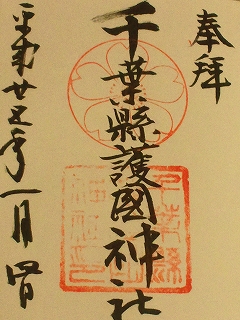 奉拜
千葉縣護國神社
平成廿五年一月四日